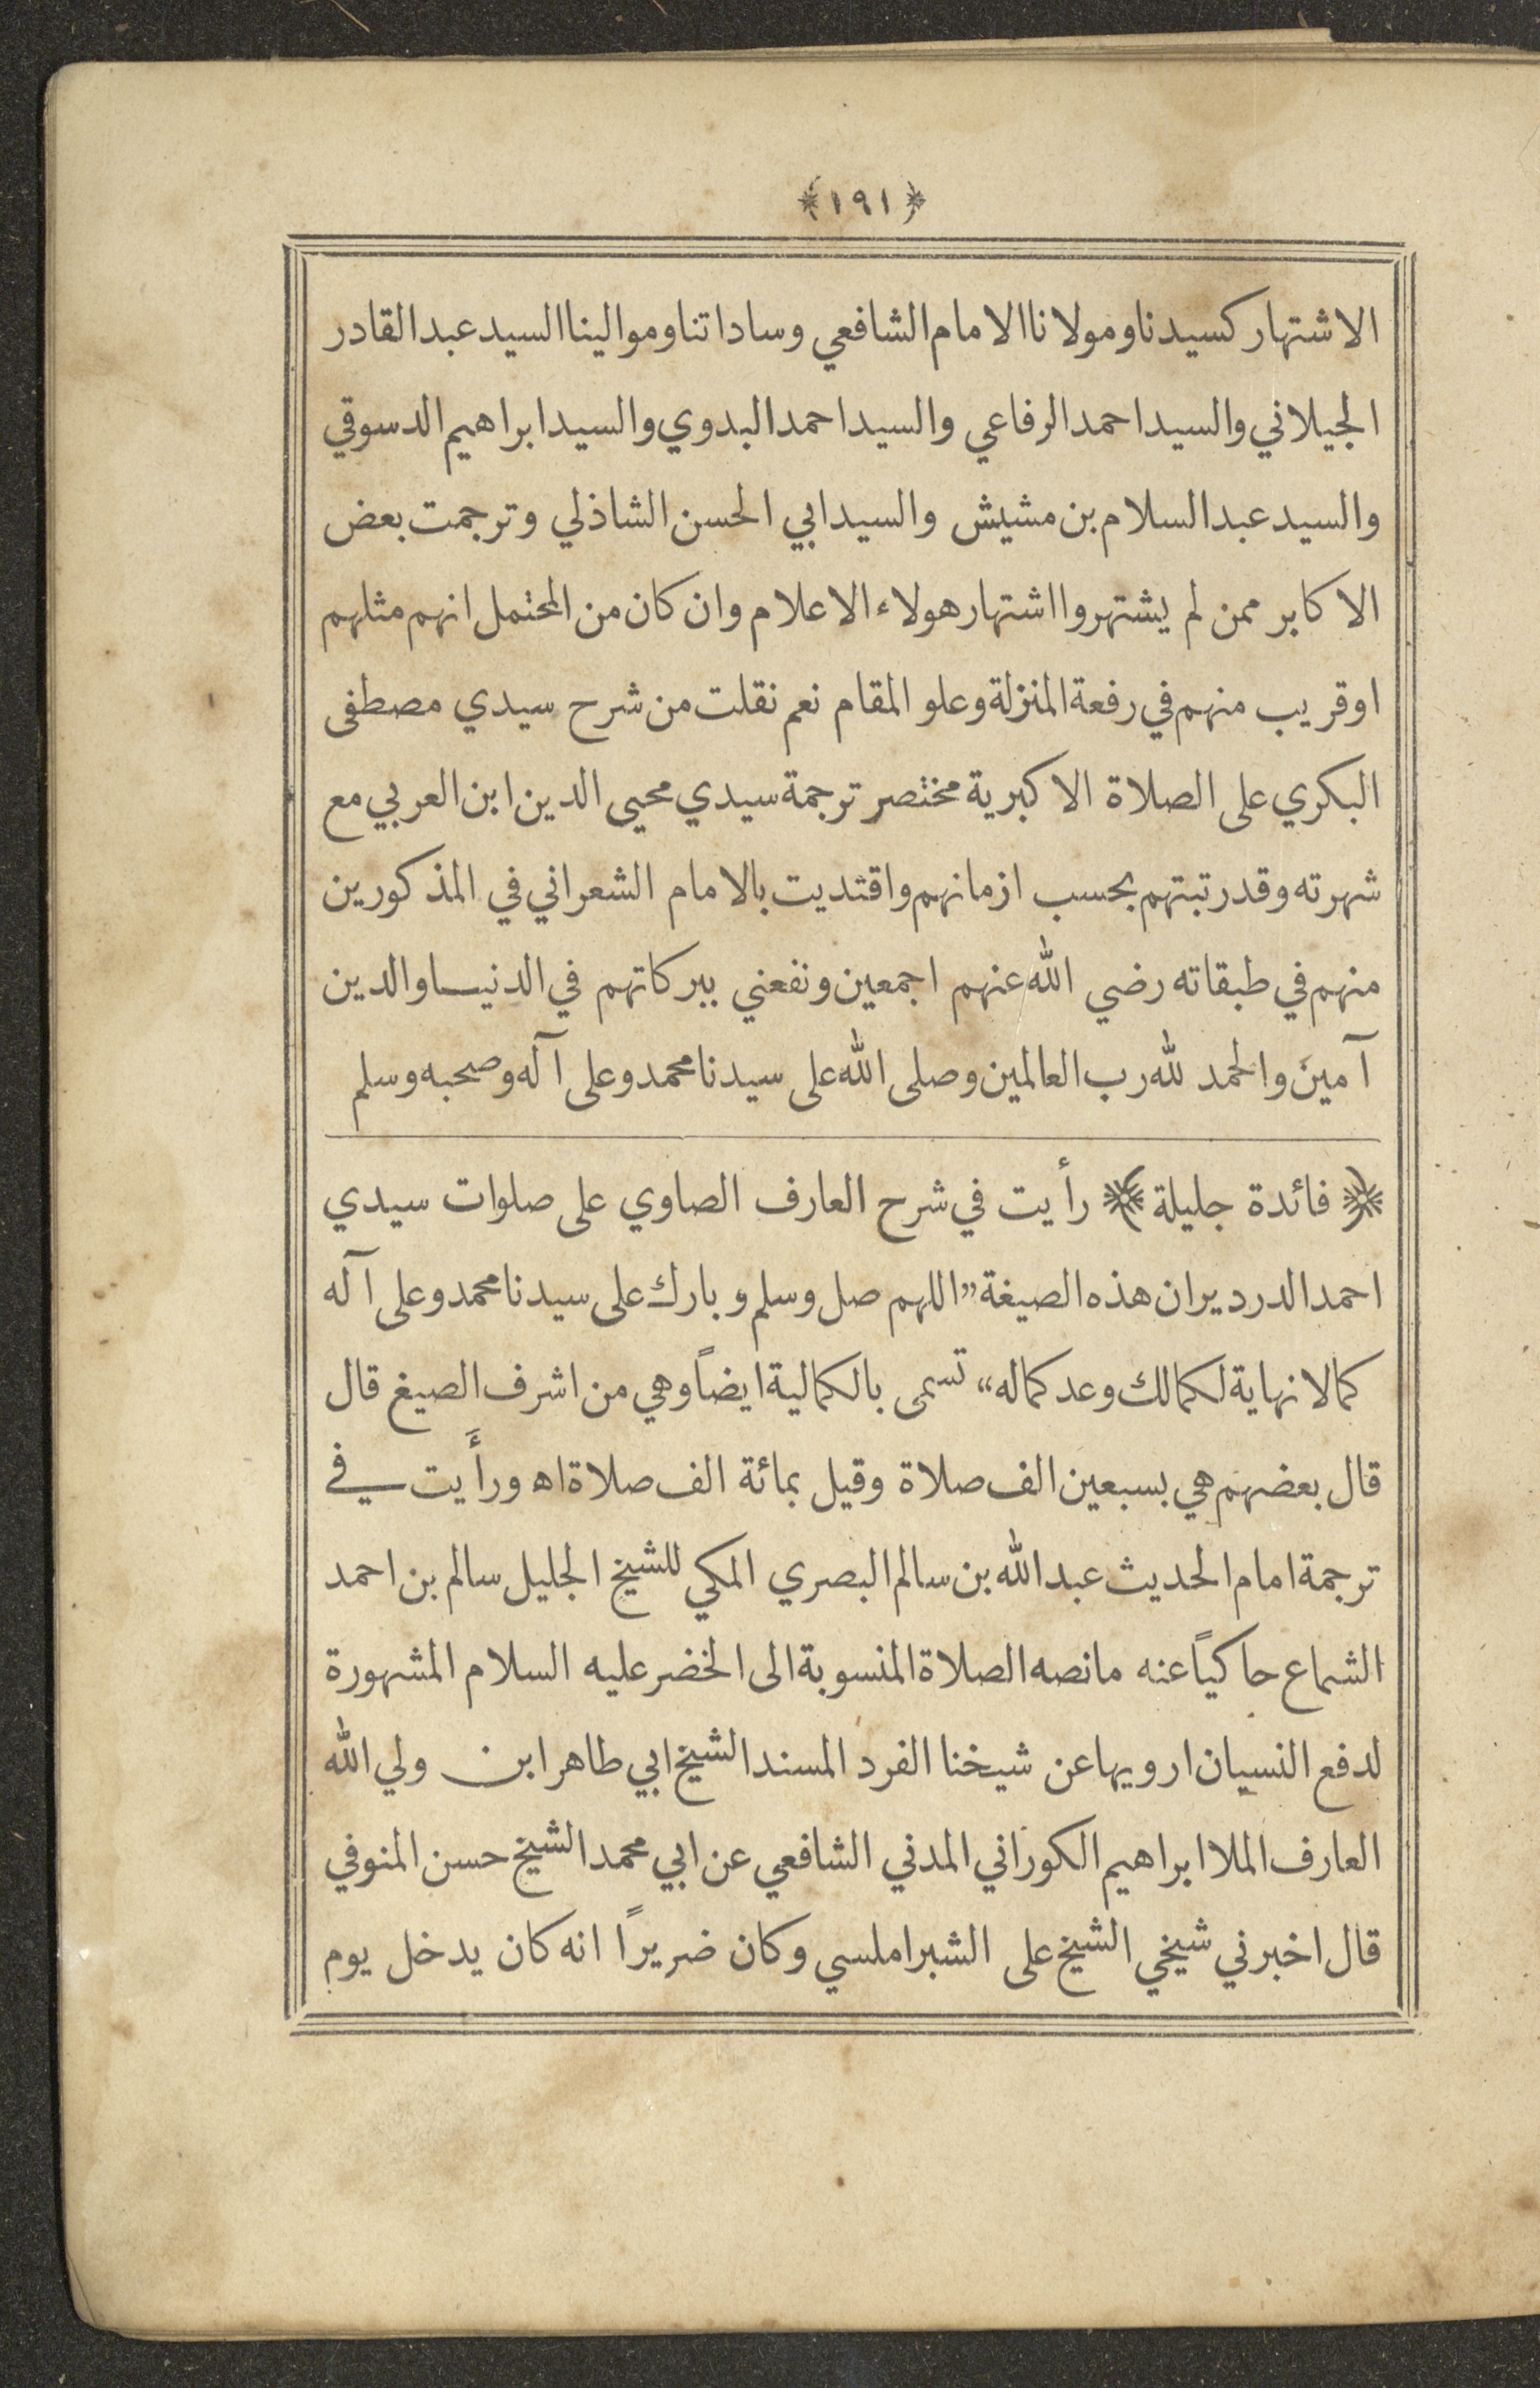 ﴿١٩١﴾
الاشتهار كسيدنا ومولانا الامام الشافعي وساداتنا وموالينا السيد عبد القادر
الجيلاني والسيد احمد الرفاعي والسيد احمد البدوي والسيد ابراهيم الدسوقي
والسيد عبد السلام بن مشيش والسيد ابي الحسن الشاذلي وترجمت بعض
الاكابر ممن لم يشتهروا اشتهار هولاء الاعلام وان كان من المحتمل انهم مثلهم
او قريب منهم في رفعة المنزلة وعلو المقام نعم نقلت من شرح سيدي مصطفى
البكري على الصلاة الاكبرية مختصر ترجمة سيدي محيى الدين ابن العربي مع
شهرته وقد رتبتهم بحسب ازمانهم واقتديت بالامام الشعراني في المذكورين
منهم في طبقاته رضي الله عنهم اجمعين ونفعني ببركاتهم في الدنيا والدين
آمين والحمد لله رب العالمين وصلى الله على سيدنا محمد وعلى آله وصحبه وسلم
﴿ فائدة جليلة ﴾ رأيت في شرح العارف الصاوي على صلوات سيدي
احمد الدردير ان هذه الصيغة ”اللهم صل وسلم وبارك على سيدنا محمد وعلى آله
كما لا نهاية لكمالك وعد كماله“ تسمى بالكمالية ايضاً وهي من اشرف الصيغ قال
قال بعضهم هي بسبعين الف صلاة وقيل بمائة الف صلاة اه ورأَيت في
ترجمة امام الحديث عبد الله بن سالم البصري المكي للشيخ الجليل سالم بن احمد
الشماع حاكياً عنه ما نصه الصلاة المنسوبة الى الخضر عليه السلام المشهورة
لدفع النسيان ارويها عن شيخنا الفرد المسند الشيخ ابي طاهر ابن ولي الله
العارف الملا ابراهيم الكوراني المدني الشافعي عن ابي محمد الشيخ حسن المنوفي
قال اخبرني شيخي الشيخ على الشبراملسي وكان ضريراً انه كان يدخل يوم